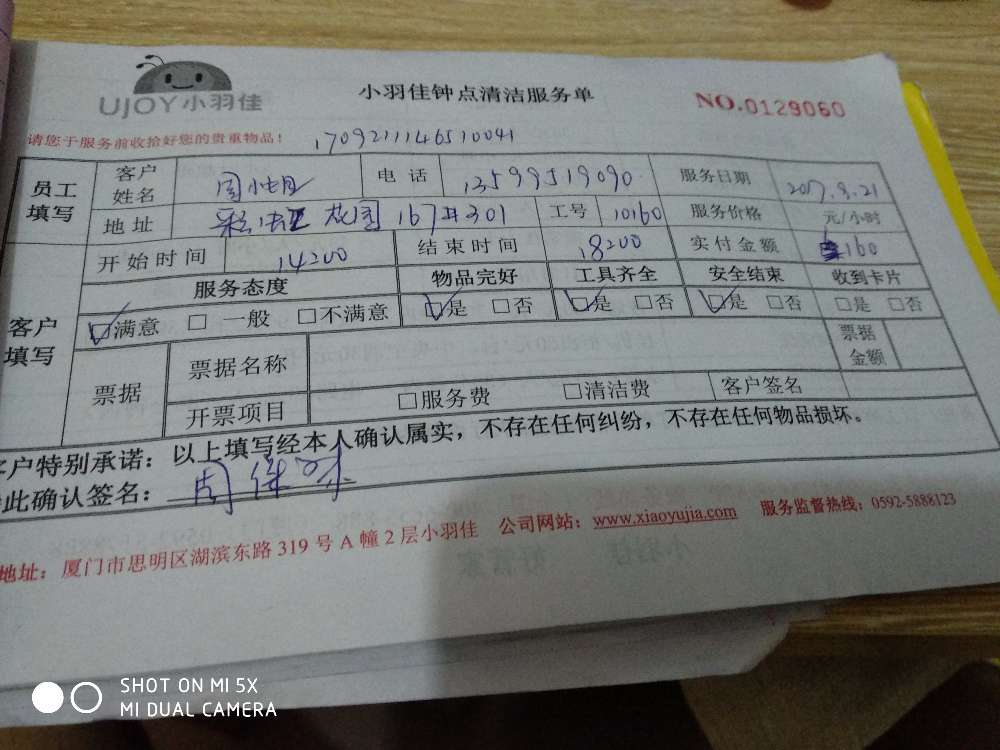 UJOY小羽佳
小羽佳钟点清洁服务单
NO.0129060
请您于服务前收拾好您的贵重物品！
170921114651004
员工填写 客户姓名 电话 13599519090 服务日期 2017.9.21
地址 花园167#301 工号 10160 服务价格 元/小时
开始时间 14:00 结束时间 18:00 实付金额 160
客户填写 服务态度 物品完好 工具齐全 安全结束 收到卡片
满意 □ 一般 □不满意 是 □否 是 □否 是 □否 □是 □否
票据 票据名称 票据金额
开票项目 □服务费 □清洁费 客户签名
客户特别承诺：以上填写经本人确认属实，不存在任何纠纷，不存在任何物品损坏。
此确认签名：
地址：厦门市思明区湖滨东路 319 号 A 幢 2 层小羽佳 公司网站：www.xiaoyujia.com 服务监督热线：0592-5888123
SHOT ON MI 5X
MI DUAL CAMERA